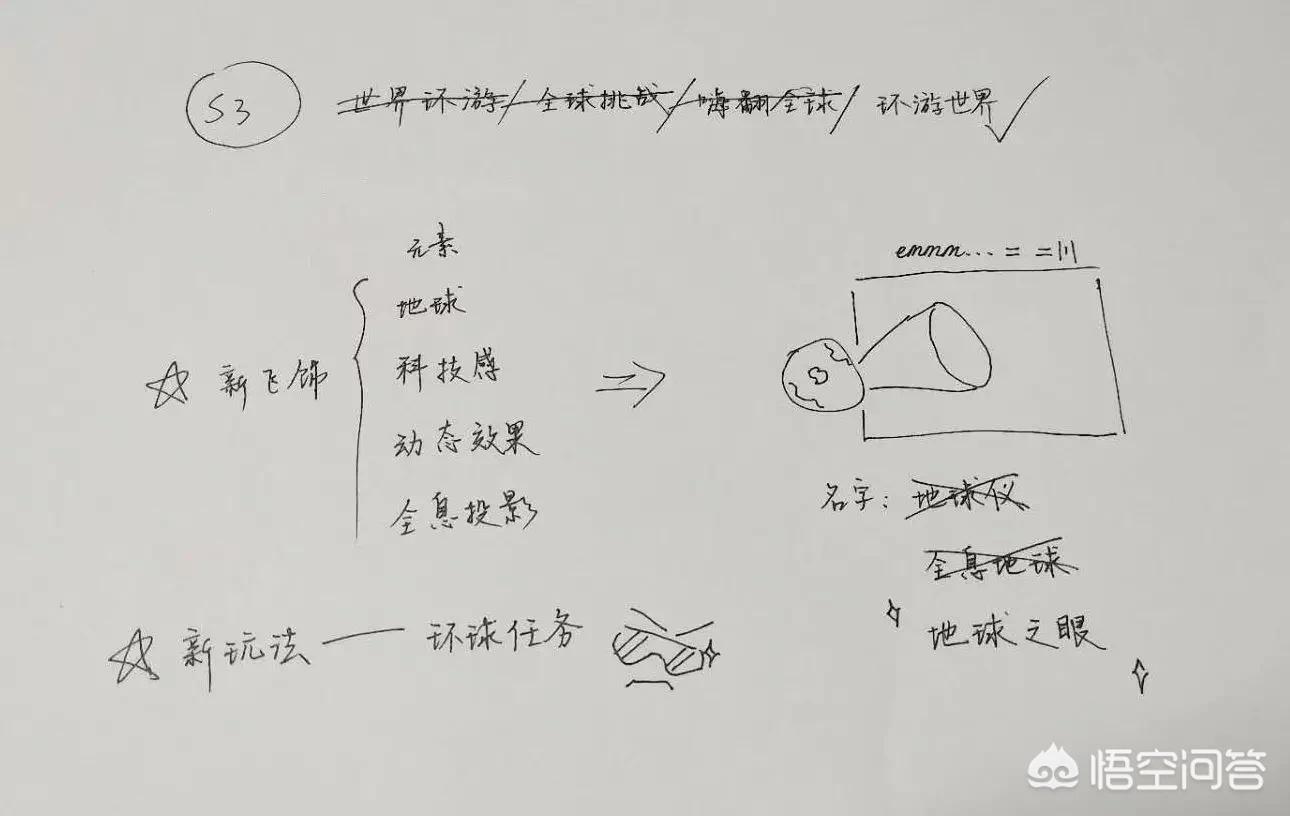 S3 世界环游/全球挑战/嗨翻全球/环游世界✓
元素
地球
☆ 新飞饰
科技感
动态效果
全息投影
emmm... = =|||
名字: 地球仪
全息地球
地球之眼
☆ 新玩法——环球任务
悟空问答